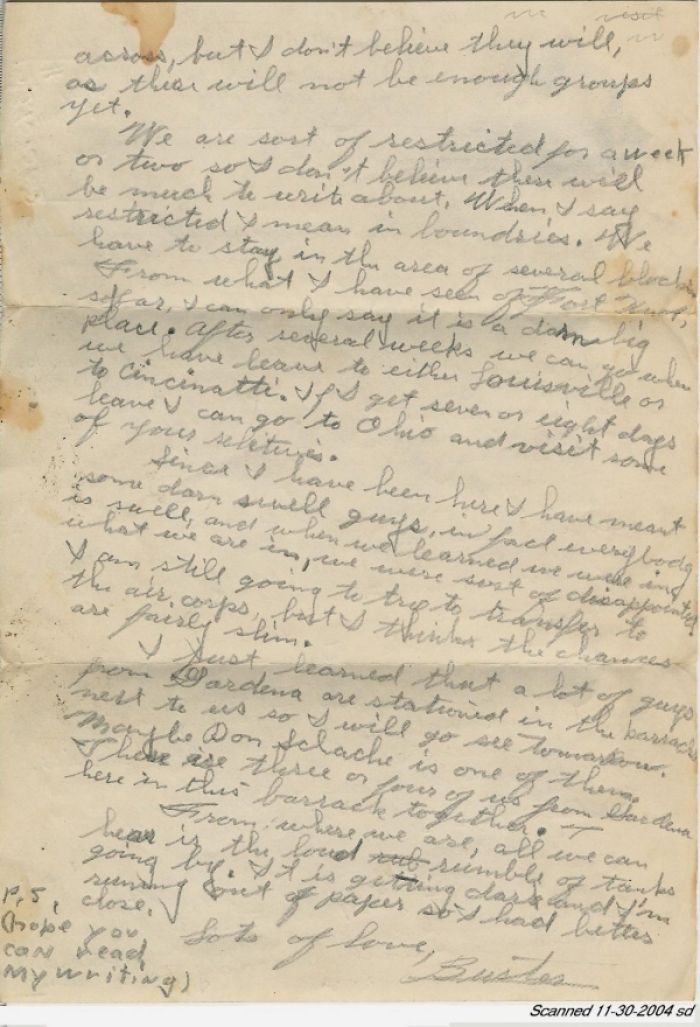 visit
across, but I don't believe they will,
as there will not be enough groups
yet.
We are sort of restricted for a week
or two so I don't believe there will
be much to write about. When I say
restricted I mean in boundries. We
have to stay in the area of several blocks.
From what I have seen of Fort Knox,
so far, I can only say it is a darn big
place. After several weeks we can go when
we have leave to either Louisville or
to Cincinatti. If I get seven or eight days
leave I can go to Ohio and visit some
of your reletives.
Since I have been here I have meant
some darn swell guys, in fact everybody
is swell, and when we learned we were in
what we are in, we were sort of disappointed
I am still going to try to transfer to
the air corps, but I think the chances
are fairly slim.
I just learned that a lot of guys
from Gardena are stationed in the barracks
next to us so I will go see tomorrow.
Maybe Don is one of them.
There are three or four of us from Gardena
here in this barrack together.
From where we are, all we can
hear is the loud rumble of tanks
going by. It is getting dark and I'm
running out of paper so I had better
close.
Lots of love,
Buster
P.S.
(hope you
can read
my writing)
Scanned 11-30-2004 sd